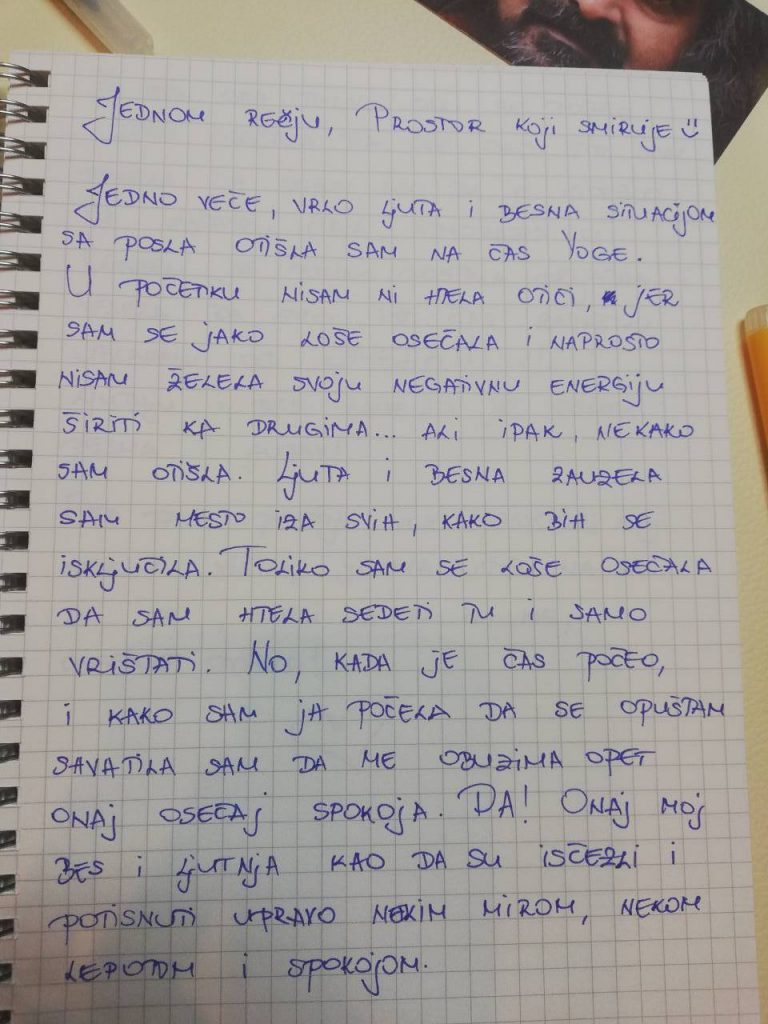 JEDNOM REČJU, PROSTOR KOJI SMIRUJE :)
JEDNO VEČE, VRLO LJUTA I BESNA SITUACIJOM
SA POSLA OTIŠLA SAM NA ČAS YOGE.
U POČETKU NISAM NI HTELA OTIĆI, JER
SAM SE JAKO LOŠE OSEĆALA I NAPROSTO
NISAM ŽELELA SVOJU NEGATIVNU ENERGIJU
ŠIRITI KA DRUGIMA... ALI IPAK, NEKAKO
SAM OTIŠLA. LJUTA I BESNA ZAUZELA
SAM MESTO IZA SVIH, KAKO BIH SE
ISKLJUČILA. TOLIKO SAM SE LOŠE OSEĆALA
DA SAM HTELA SEDETI TU I SAMO
VRIŠTATI. NO, KADA JE ČAS POČEO,
I KAKO SAM JA POČELA DA SE OPUŠTAM
SAVATILA SAM DA ME OBUZIMA OPET
ONAJ OSEĆAJ SPOKOJA. DA! ONAJ MOJ
BES I LJUTNJA KAO DA SU ISČEZLI I
POTISNUTI UPRAVO NEKIM MIROM, NEKOM
LEPOTOM I SPOKOJOM.